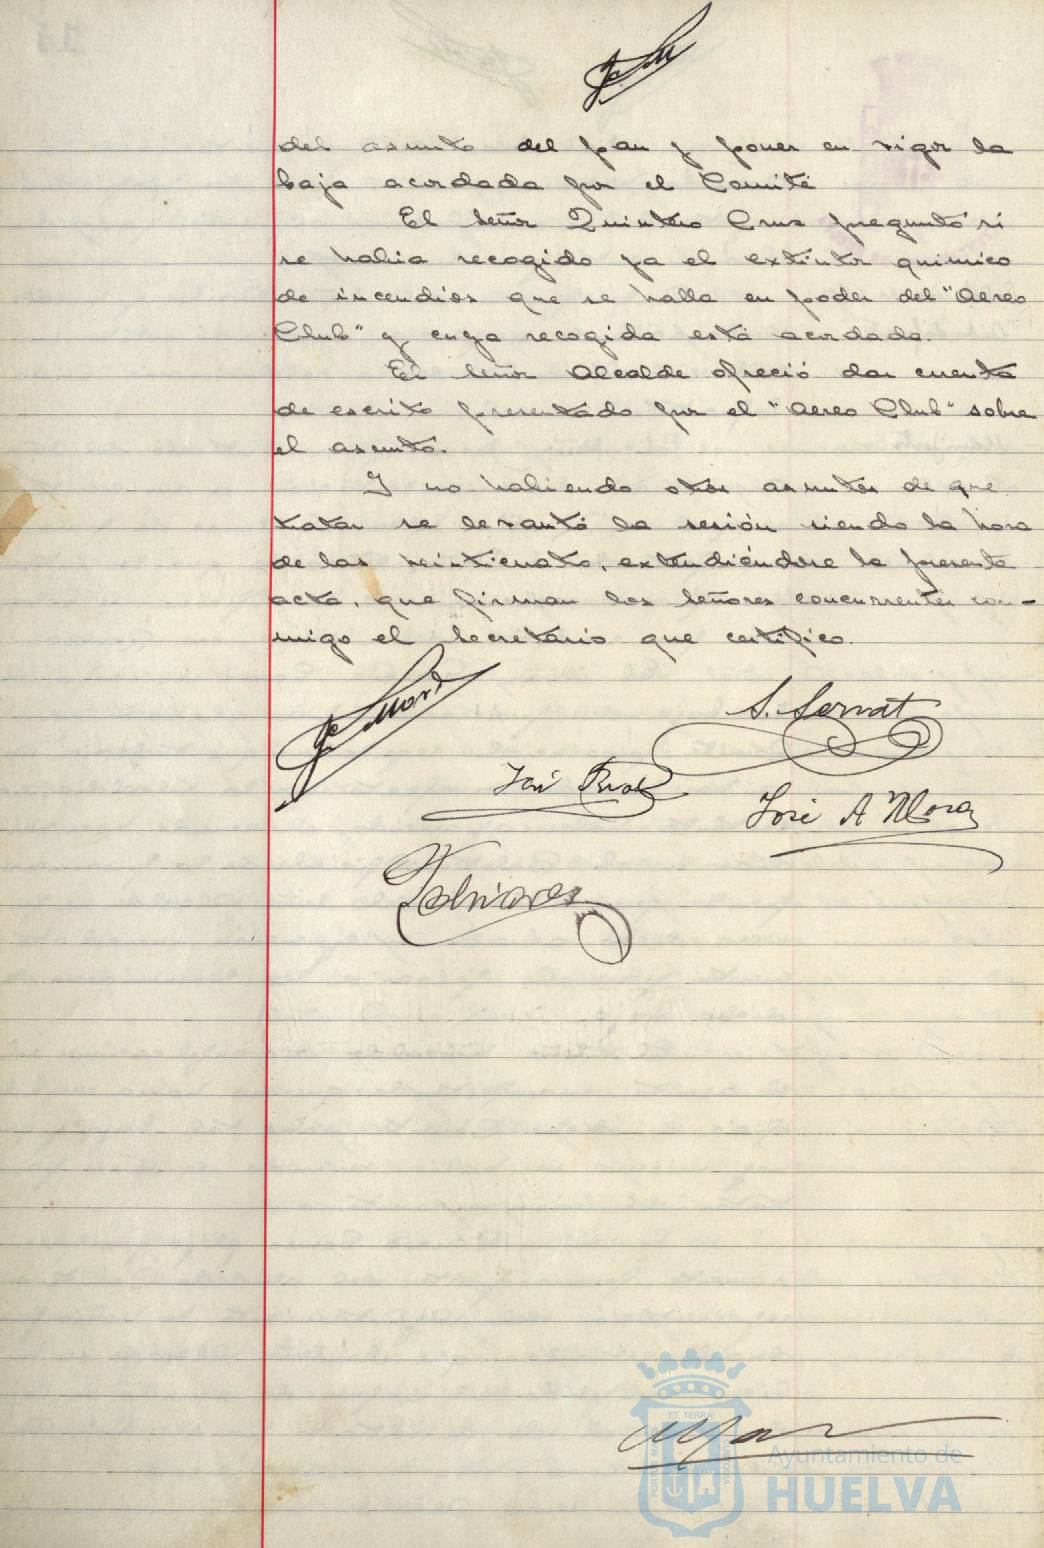 del asunto del pan y poner en vigor la
baja acordada por el Comité
El señor Quintero Cruz preguntó si
se habia recogido ya el extintor quimico
de incendios que se halla en poder del "Aereo
Club" y cuya recogida está acordada.
El señor Alcalde ofreció dar cuenta
de escrito presentado por el "Aereo Club" sobre
el asunto.
Y no habiendo otros asuntos de que
tratar se levantó la sesión siendo la hora
de las veinticuatro, extendiéndose la presente
acta, que firman los señores concurrentes con-
migo el Secretario que certifico.
S. Serrat
José
José A Mora
ET TERRÆ
Ayuntamiento de
HUELVA